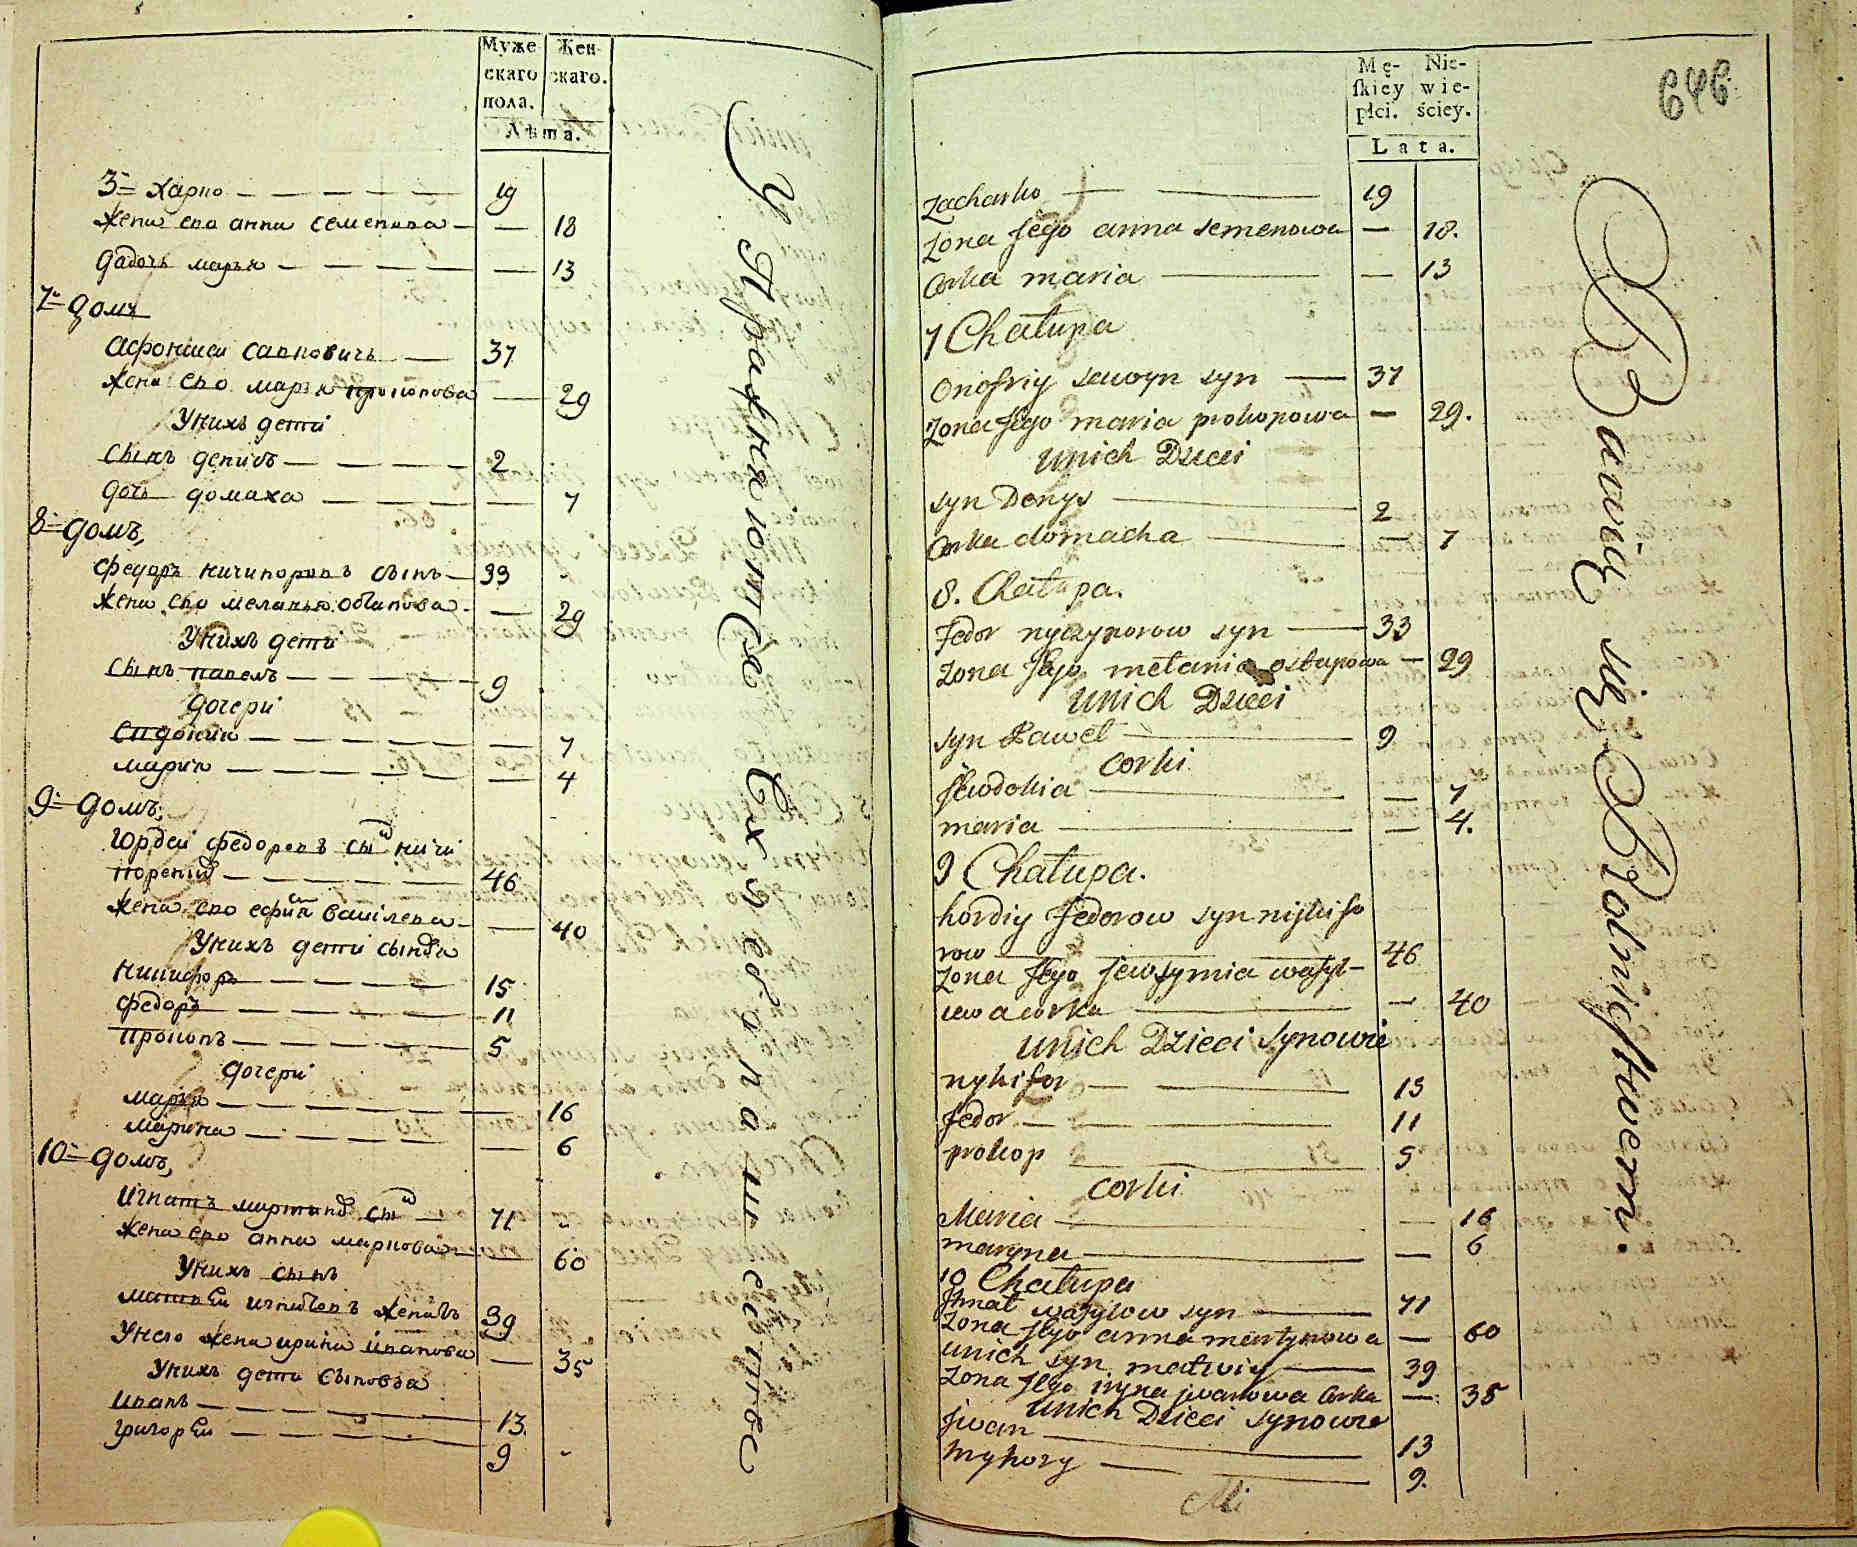 Муже
скаго
пола.
Жен
скаго.
Лѣта.
3= харко 19
жена его анна семенова 18
дадочь марья 13
7= домъ
Афонасей савковичъ 37
жена его марья прокопова 29
У нихъ дети
сынъ денисъ 2
дочь домаха 7
8= домъ,
Федоръ ничипоровъ сынъ 33
жена его меланья 29
У нихъ дети
сынъ павелъ 9
дочери
7
мария 4
9= домъ,
Юрдей федоровъ сы ничи
46
жена его 40
У нихъ дети
никифоръ 15
федоръ 11
прокопъ 5
дочери
марья 16
марина 6
10= домъ,
Игнатъ 71
жена его анна маркова 60
У нихъ сынъ
39
У него жена ирина иванова 35
У нихъ дети сыновья
иванъ 13
григорей 9
Упражняются в хлебопашестве
Mę-
skiey
płci.
Nie-
wie-
ściey.
Lata.
646
Zacharko 19
Zona Jego anna semenowa 18.
Corka maria 13
7 Chałupa
Onofriy sawvyn syn 37
Zona Jego maria prokopowa 29.
Unich Dzieci
syn Denys 2
Corka domacha 7
8. Chałupa.
Fedor nyczyporow syn 33
Zona Jego mełania ostapowa 29
Unich Dzieci
syn Paweł 9
Corki
Jewdokia 7
maria 4.
9 Chałupa.
hordiy Fedorow syn nykifo
row 46
Zona Jego Jewfymia wasyl-
iewa corka 40
Unich Dzieci Synowie
nykifor 15
Fedor 11
prokop 5
Corki
Maria 16
maryna 6
10 Chałupa
Ihnat wasylow syn 71
Zona Jego anna martynowa 60
Unich syn matwiy 39
Zona Jego iryna jwanowa Corka 35
Unich Dzieci synowie
Jwan 13
hryhory 9.
Mi
Bawią się Rolnictwem.